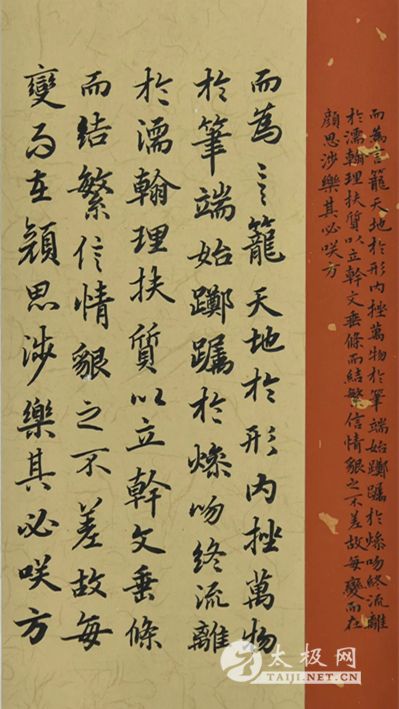 而為言籠天地於形內挫萬物於筆端始躑躅於燥吻終流離
於濡翰理扶質以立幹文垂條而結繁信情貌之不差故每變而在
顏思涉樂其必咲方
而為言籠天地於形內挫萬物
於筆端始躑躅於燥吻終流離
於濡翰理扶質以立幹文垂條
而結繁信情貌之不差故每
變而在顏思涉樂其必咲方
太极网
TAIJI.NET.CN